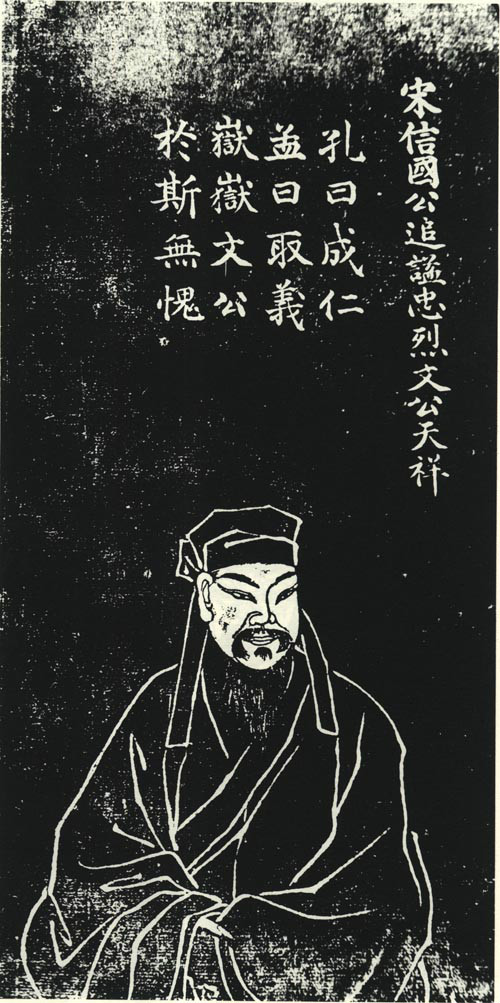 宋信國公追諡忠烈文公天祥
孔曰成仁
孟曰取義
嶽嶽文公
於斯無愧